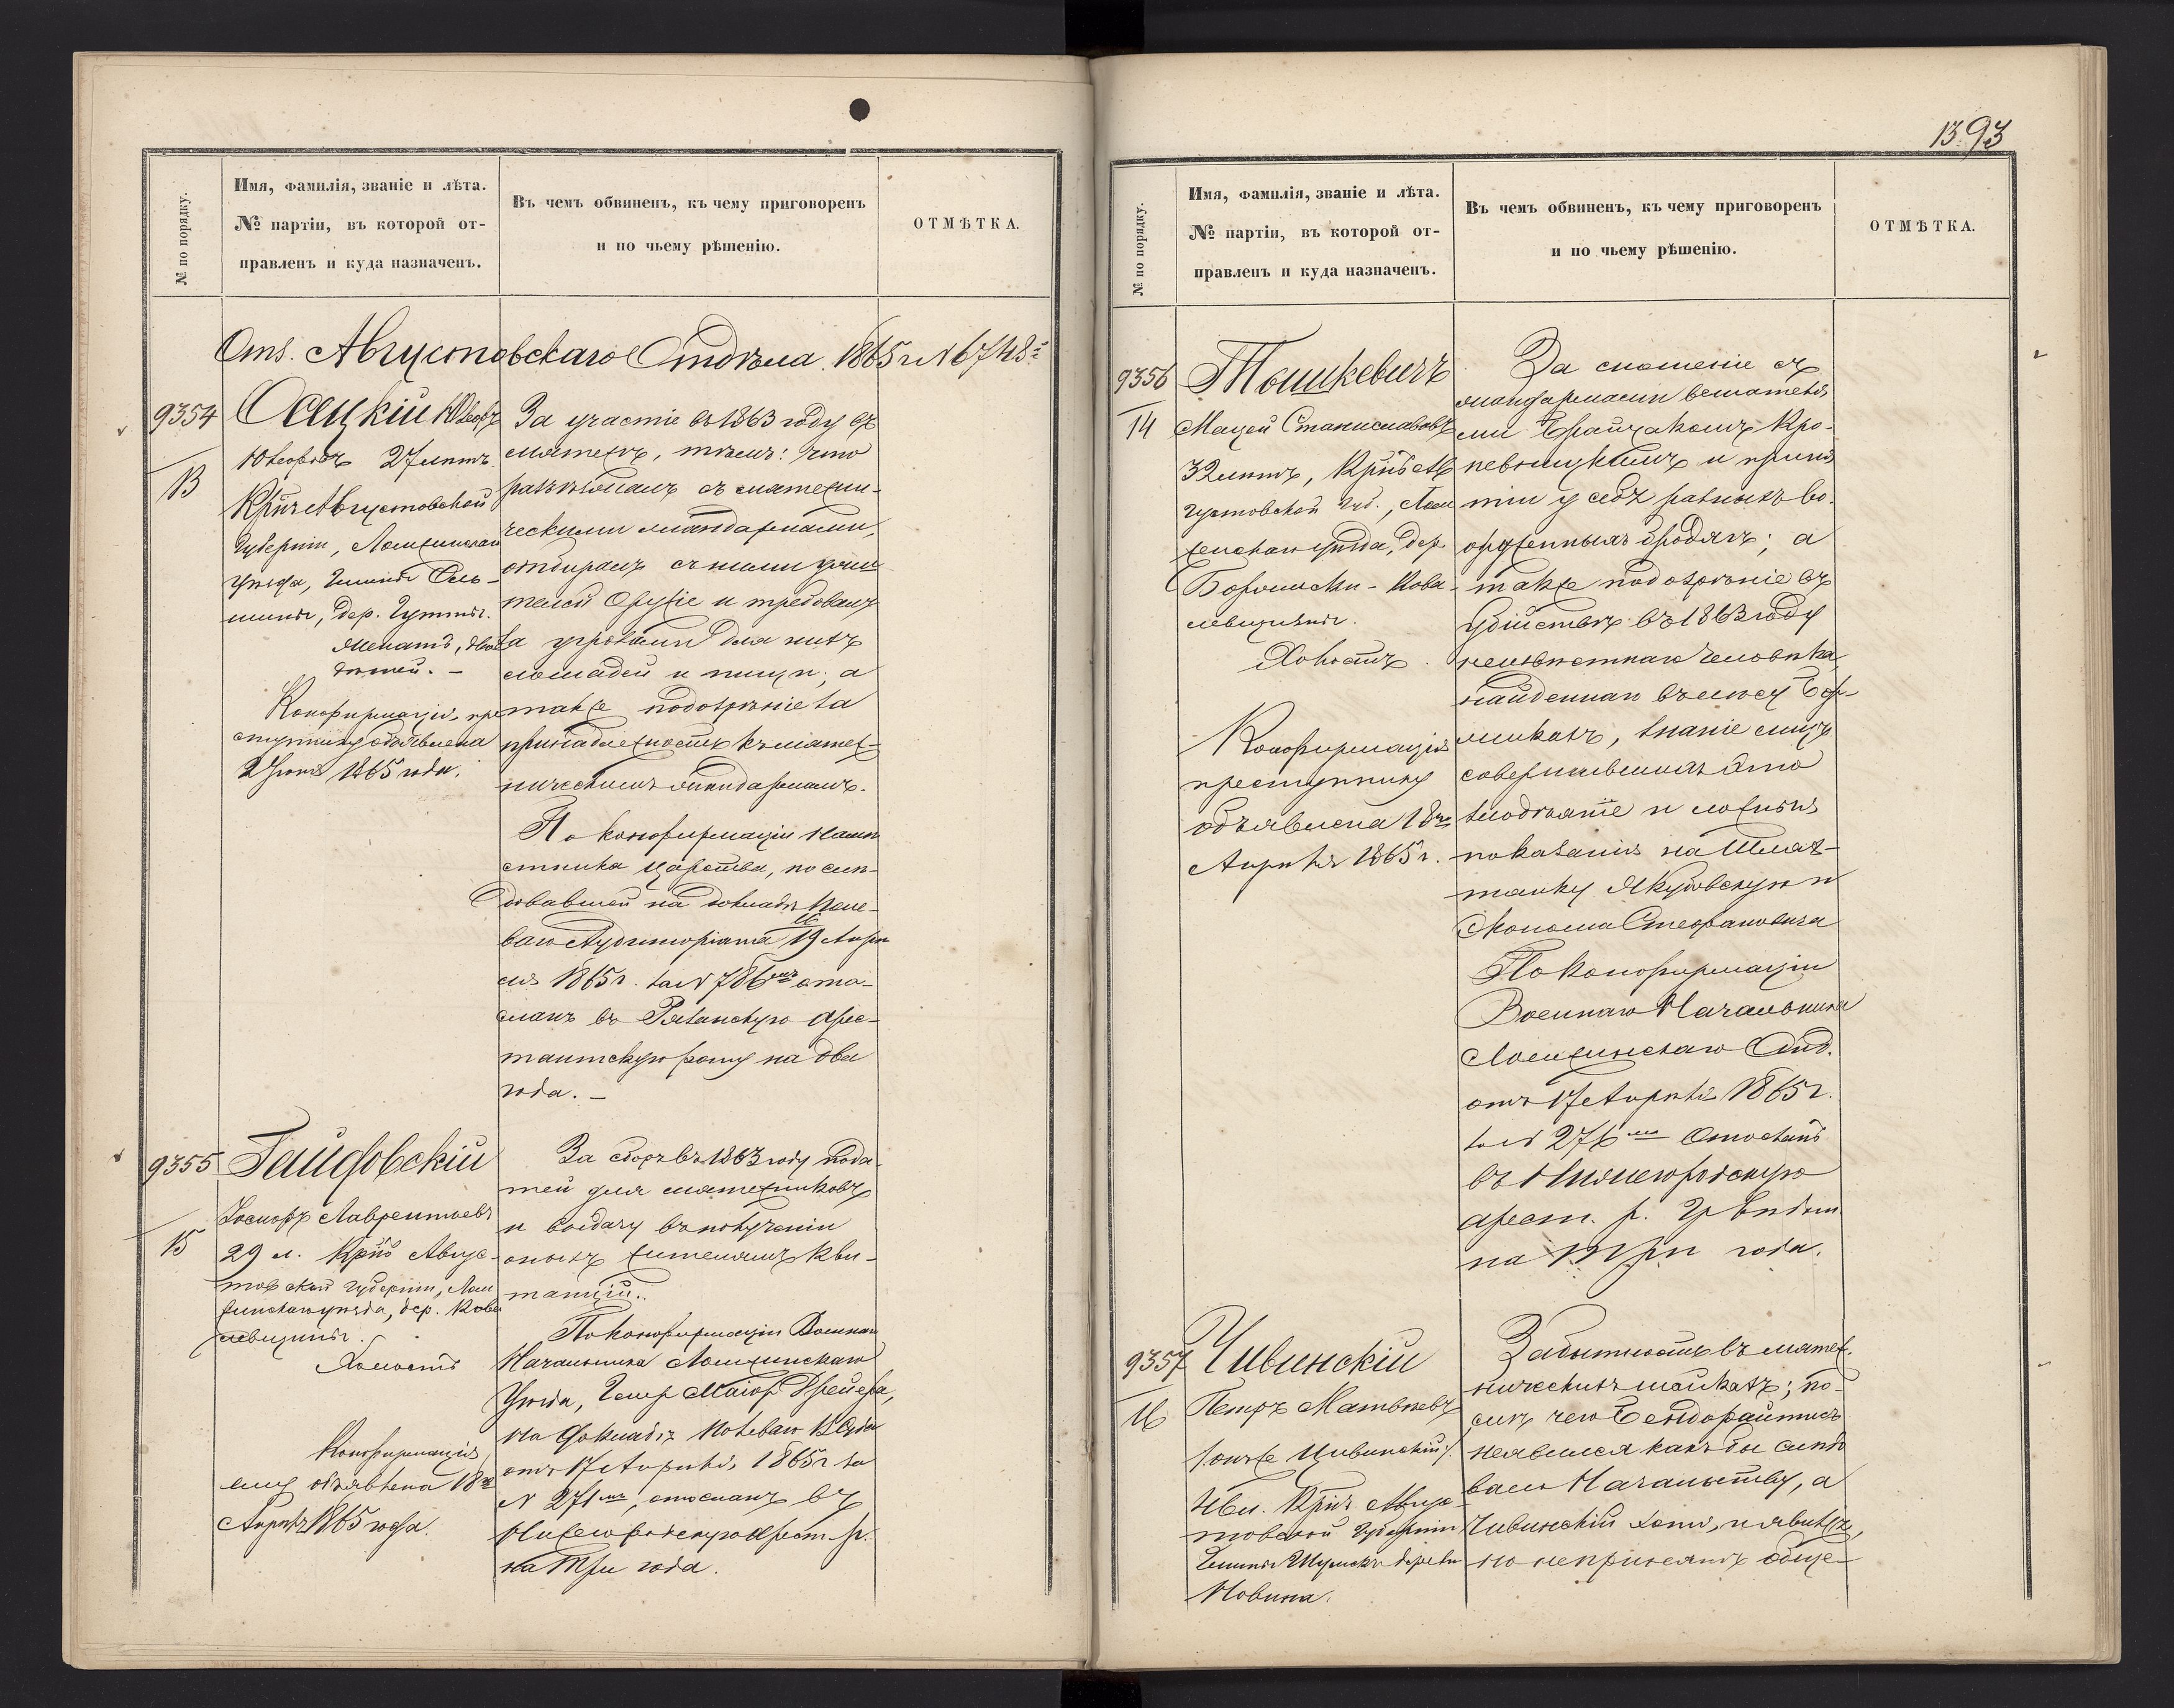 № по порядку.
Имя, фамилія, званіе и лѣта.
№ партіи, въ которой от-
правленъ и куда назначенъ.
Въ чемъ обвиненъ, къ чему приговоренъ
и по чьему рѣшенію.
ОТМѢТКА.
Отъ Августовскаго Отдѣла 1865 г N 6748
9354
13
Осецкій
27 лѣтъ
Крнъ Августовской
Губерніи, Ломжинскаго
Уѣзда, Гмины
дер. Гутты.
Женатъ, двое
дѣтей. –
Конфирмація пре-
ступнику объявлена
1865 года.
За участіе въ 1863 году въ
мятежѣ, тѣмъ: что
разъѣзжалъ съ мятежни-
ческими жандармами,
отбиралъ съ ними у жи
телей Оружіе и требовалъ
за угрозами для нихъ
лошадей и пищи; а
также подозрѣніе за
принадлежность къ мятеж-
ническимъ жандармамъ.
По конфирмаціи Намѣ
стника Царства, по слѣ-
довавшей на докладѣ Поле-
ваго Аудиторіата 19 Апрѣ
ля 1865 г. за N 786 ото-
сланъ въ Рязанскую Арес-
тантскую роту на два
года. –
9355
15
Гайдовскій
Лаврентьевъ
29 л. Крнъ Авгус-
товской губерніи, Лом
жинскаго уѣзда, дер. Кова
левщины.
Холостъ
Конфирмація
ему объявлена 18го
Апрѣля 1865 года.
За сборъ въ 1863 году пода-
тей для мятежниковъ
и выдачу въ полученіи
оныхъ жителямъ кви-
танцій.
По конфирмаціи Военнаго
Начальника Ломжинскаго
Уѣзда, Генер Маіор Дрейера,
на докладѣ Полеваго
отъ 17 Апрѣля 1865 г за
N 271, отосланъ въ
Нижегородскую Арест. р.
на три года.
1393
№ по порядку.
Имя, фамилія, званіе и лѣта.
№ партіи, въ которой от-
правленъ и куда назначенъ.
Въ чемъ обвиненъ, къ чему приговоренъ
и по чьему рѣшенію.
ОТМѢТКА.
9356
14
Тошкевичъ
Мацей Станиславовъ
32 лѣтъ, Крнъ Ав
густовской Губ., Лом
жинскаго уѣзда, дер
Кова-
левщизны.
Холостъ.
Конфирмація
преступнику
объявлена 18го
Апрѣля 1865 г.
За сношеніе съ
жандармами вешателя
ми Кро-
певницкимъ и приня
тіи у себя разныхъ во-
оруженныхъ бродягъ; а
также подозрѣніе въ
убійствѣ въ 1863 году
неизвѣстнаго человѣка,
найденнаго въ лѣсу
знаніе лицъ
совершившихъ это
злодѣяніе и ложныя
показанія на Шлях-
тянку Якубовскую и
Эконома Стефановича
По конфирмаціи
Военнаго Начальника
Ломжинскаго Отд.
отъ 17 Апрѣля 1865 г.
за N 276 Отосланъ
въ Нижегородскую
арест. р. Г. Вѣдом.
на три года.
9357
16
Чивинскій
Петръ Матвѣевъ
/онъ же Цивинскій/.
Крнъ Авгус-
товской Губерніи
Гмины деревн
Новина.
За бытность въ мятеж-
ническихъ шайкахъ; по-
слѣ чего
неявился какъ бы слѣдо
вало Начальству, а
Чивинскій хотя и явился,
но непринялъ обще-